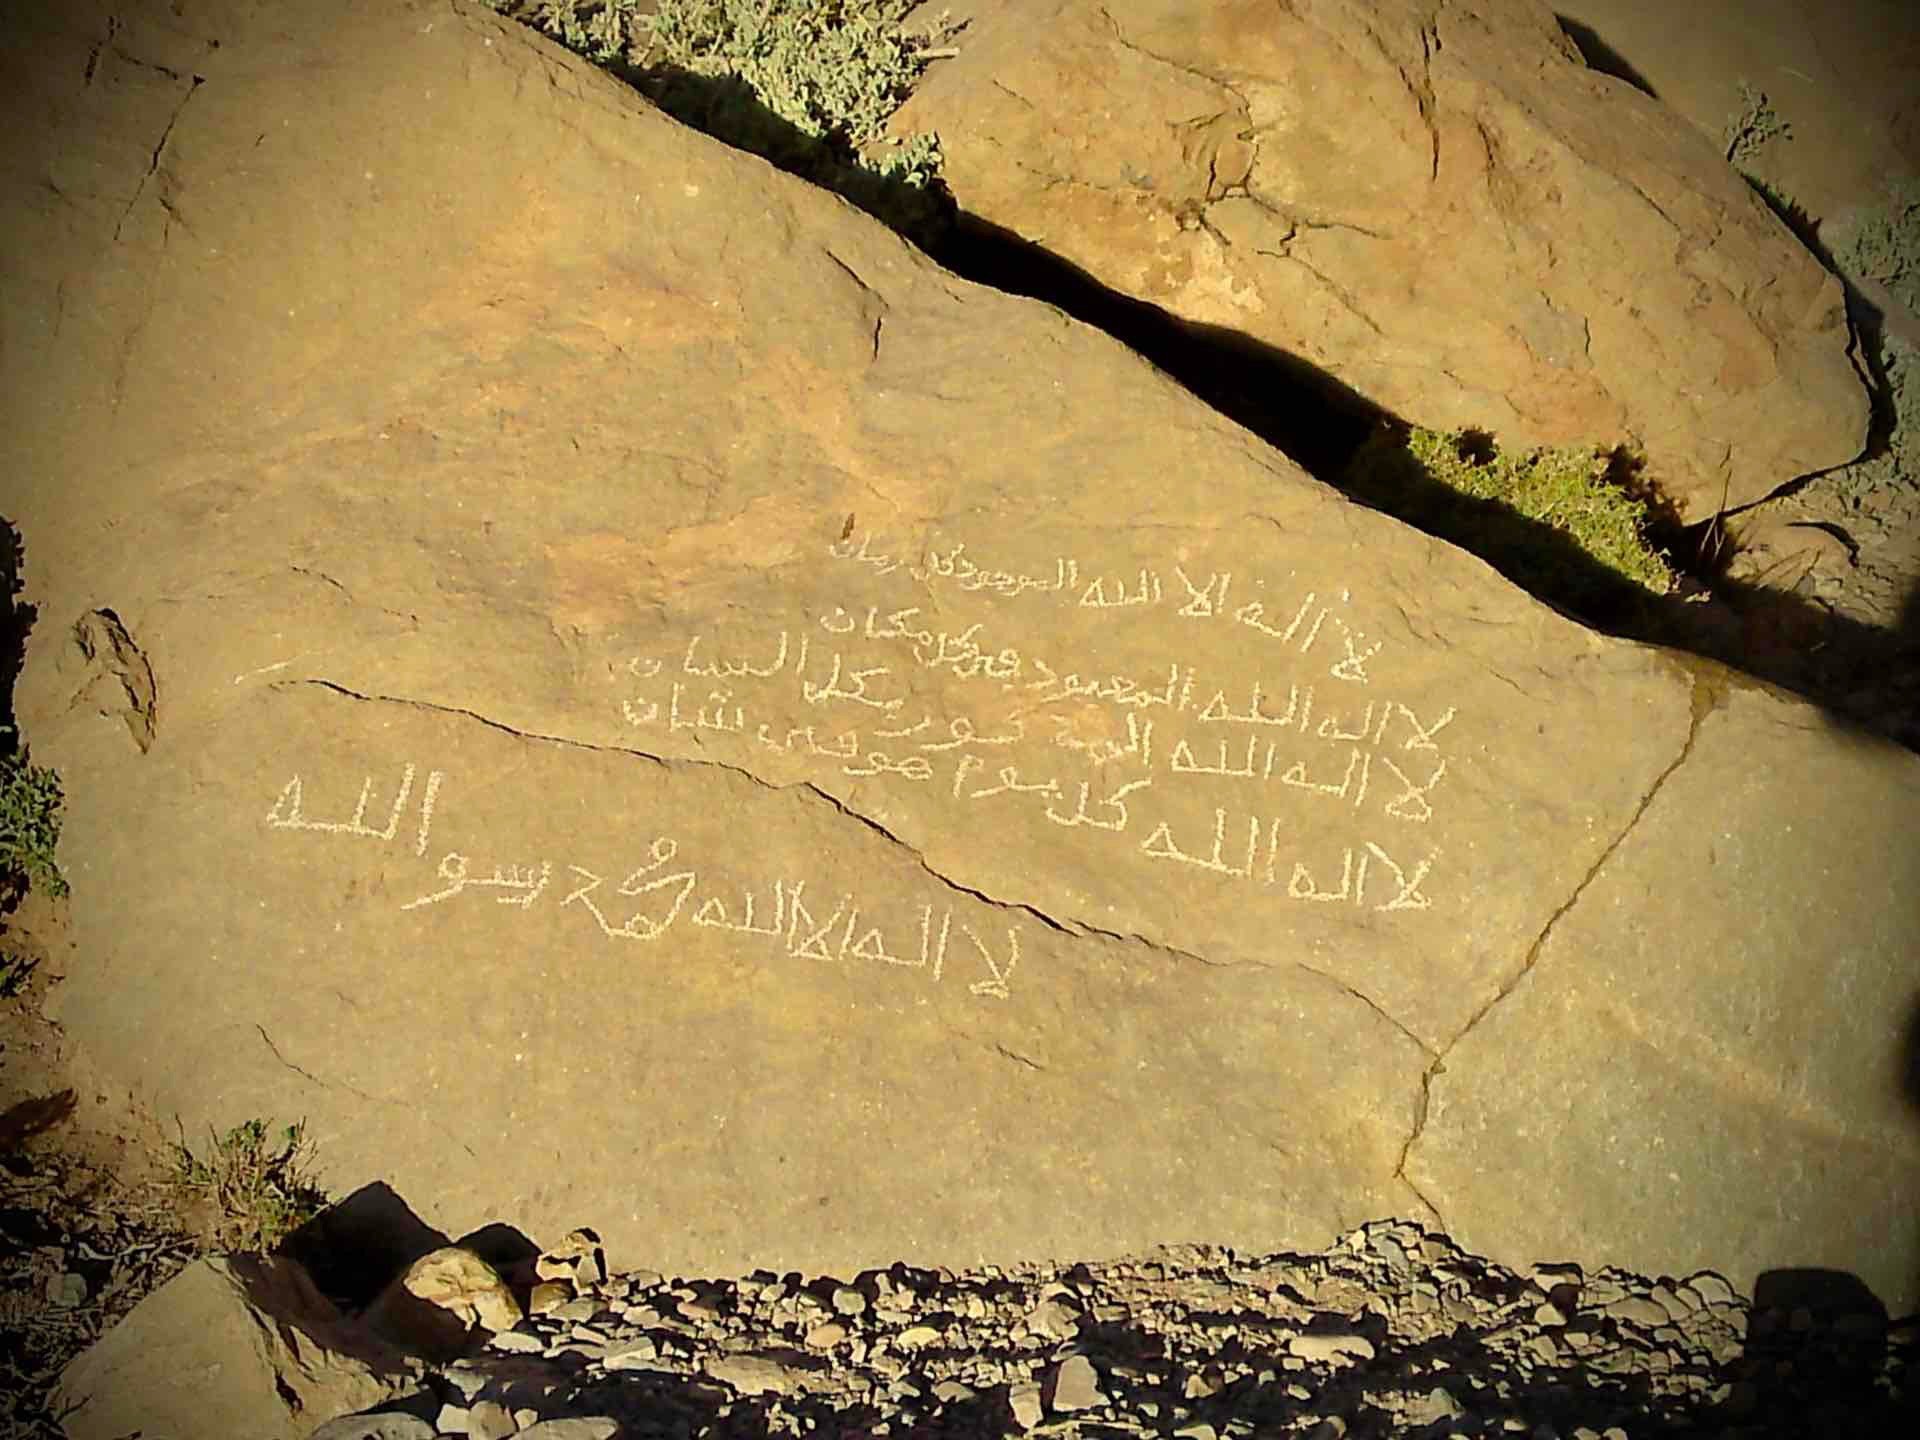 لا اله الا الله الموجود كل زمان
لا اله الله المعبود في كل مكان
لا اله الله المذكور بكل السان
لا اله الله كل يوم هو في شان
لا اله الا الله محمد رسو الله